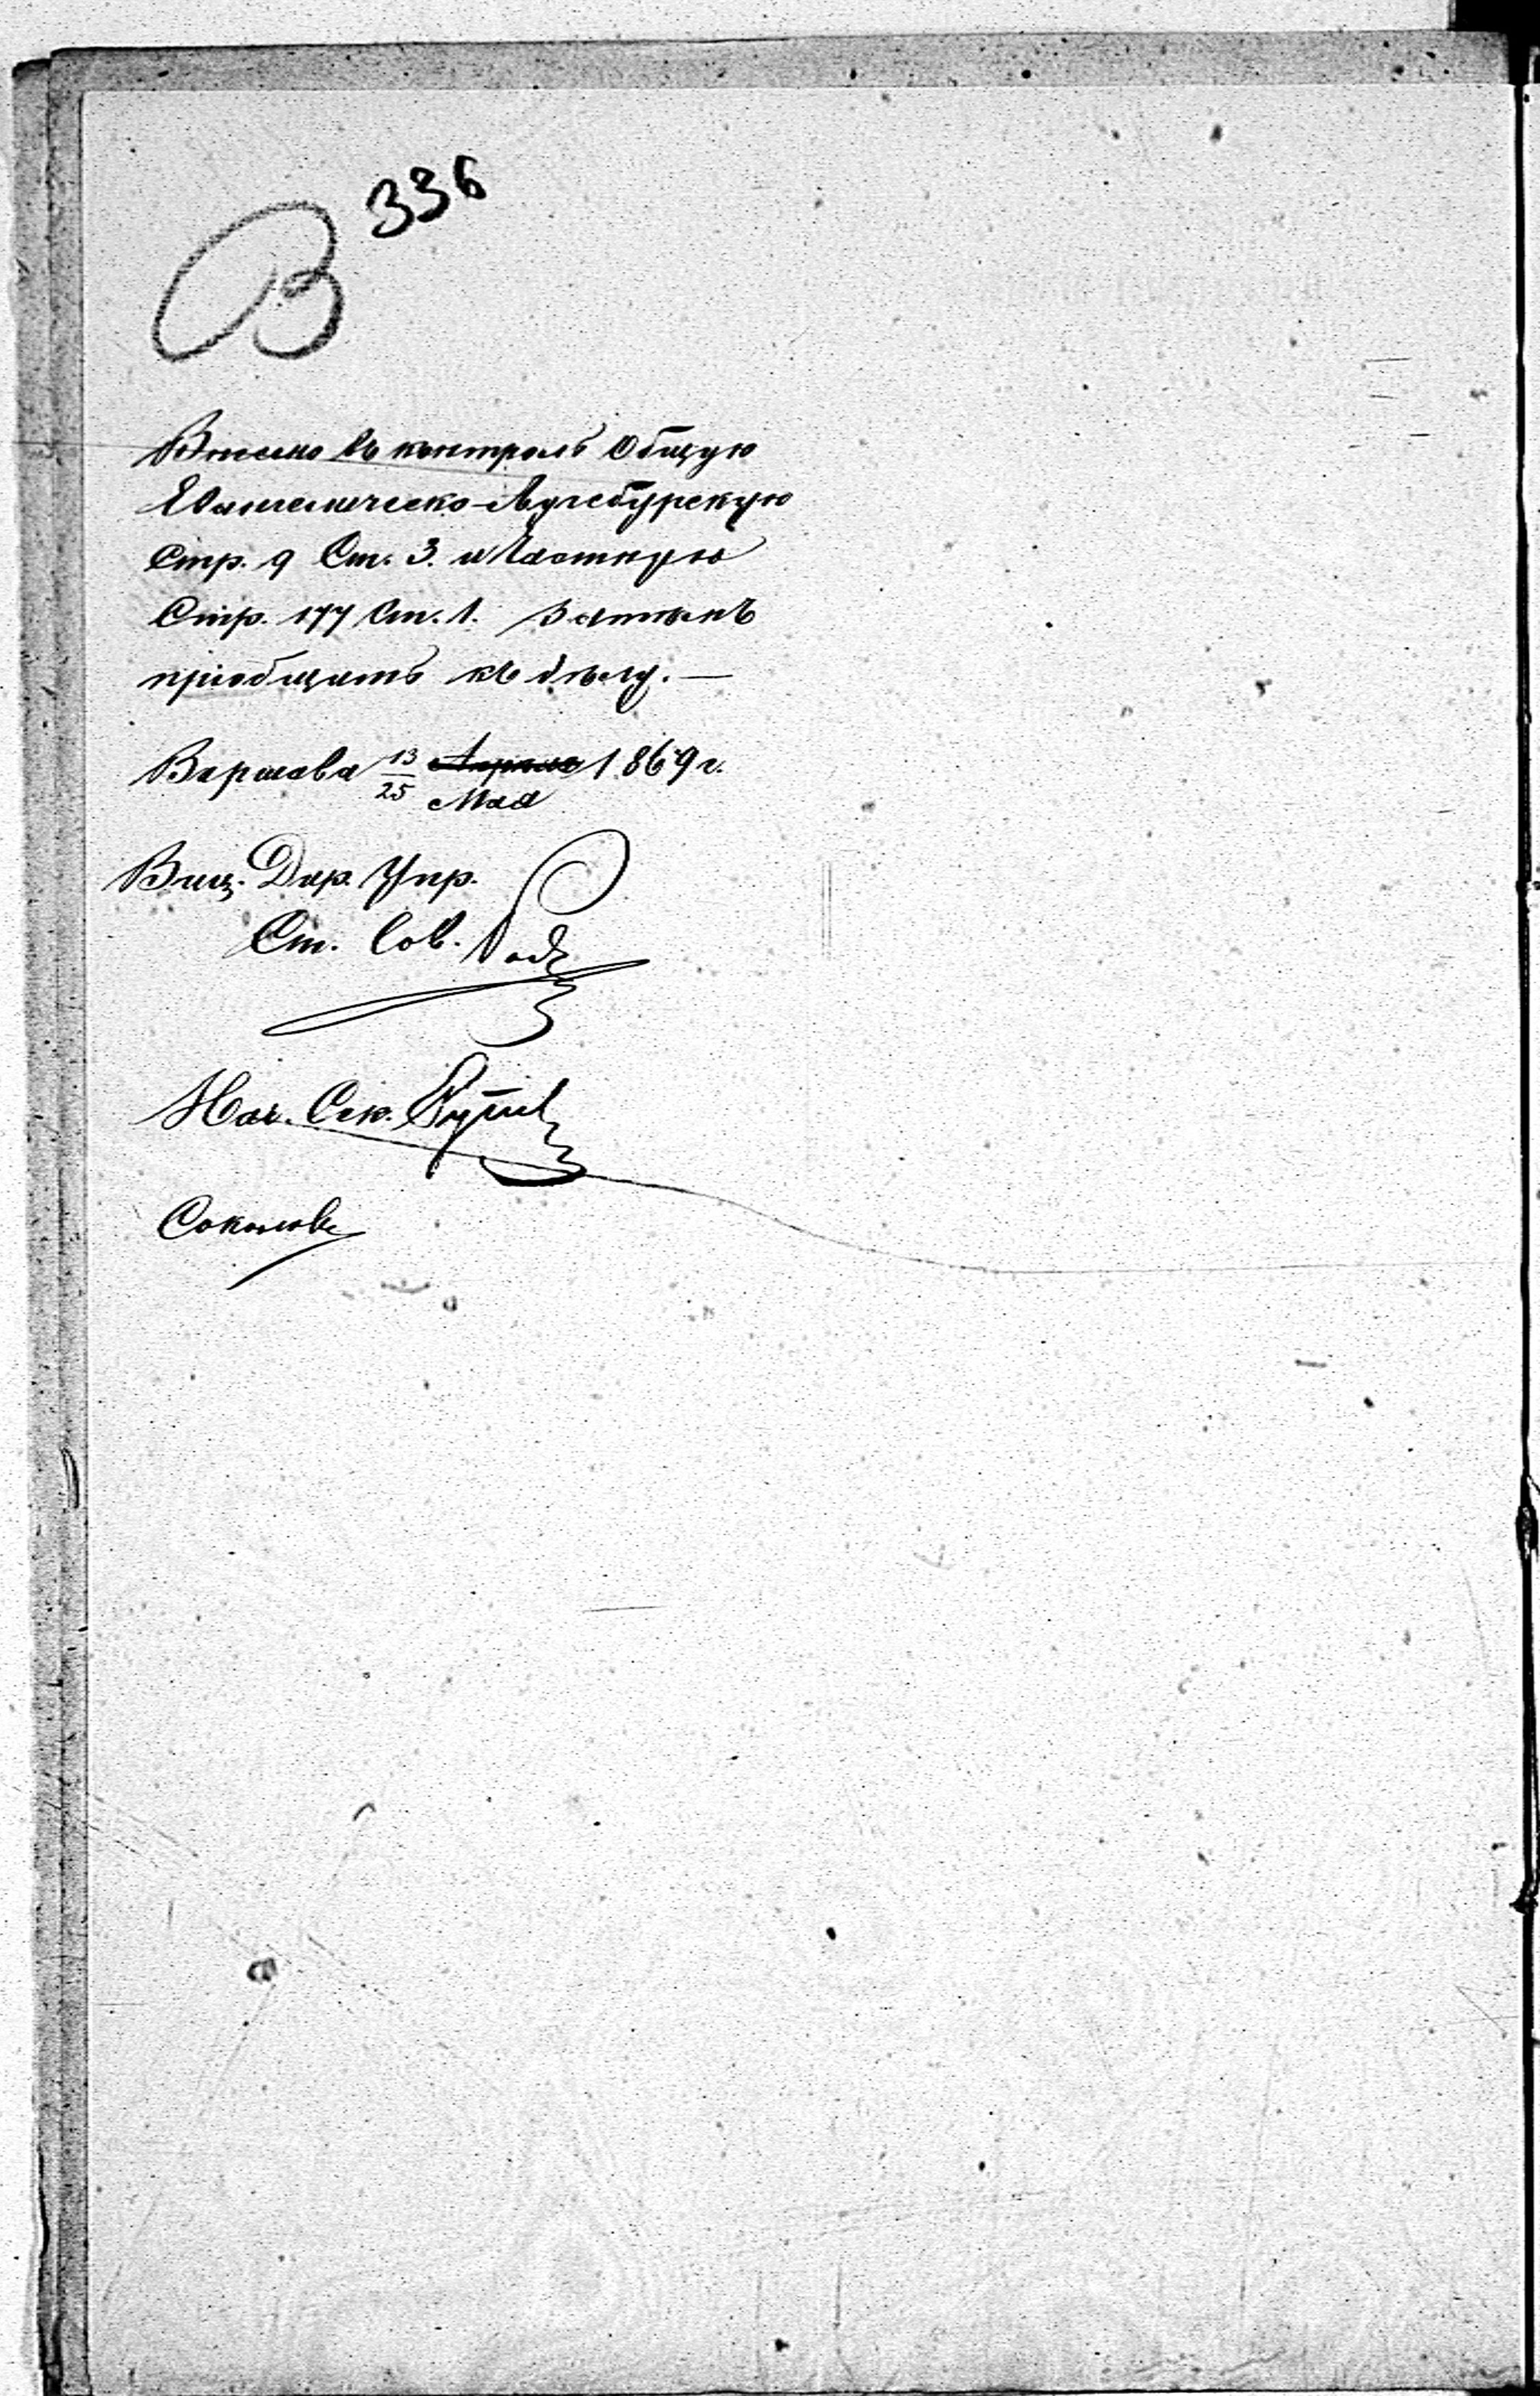 336
В
Внесено въ контроль Общую
Евангелическо-Аугсбургскую
Стр. 9 Ст. 3. и Частную
Стр. 177 Ст. 1. Затѣмъ
пріобщить къ дѣлу. —
Варшава 13/25 Апрѣля 1869 г.
Мая
Виц. Дир. Упр.
Ст. Сов.
Нач. Сек.
Соколовъ